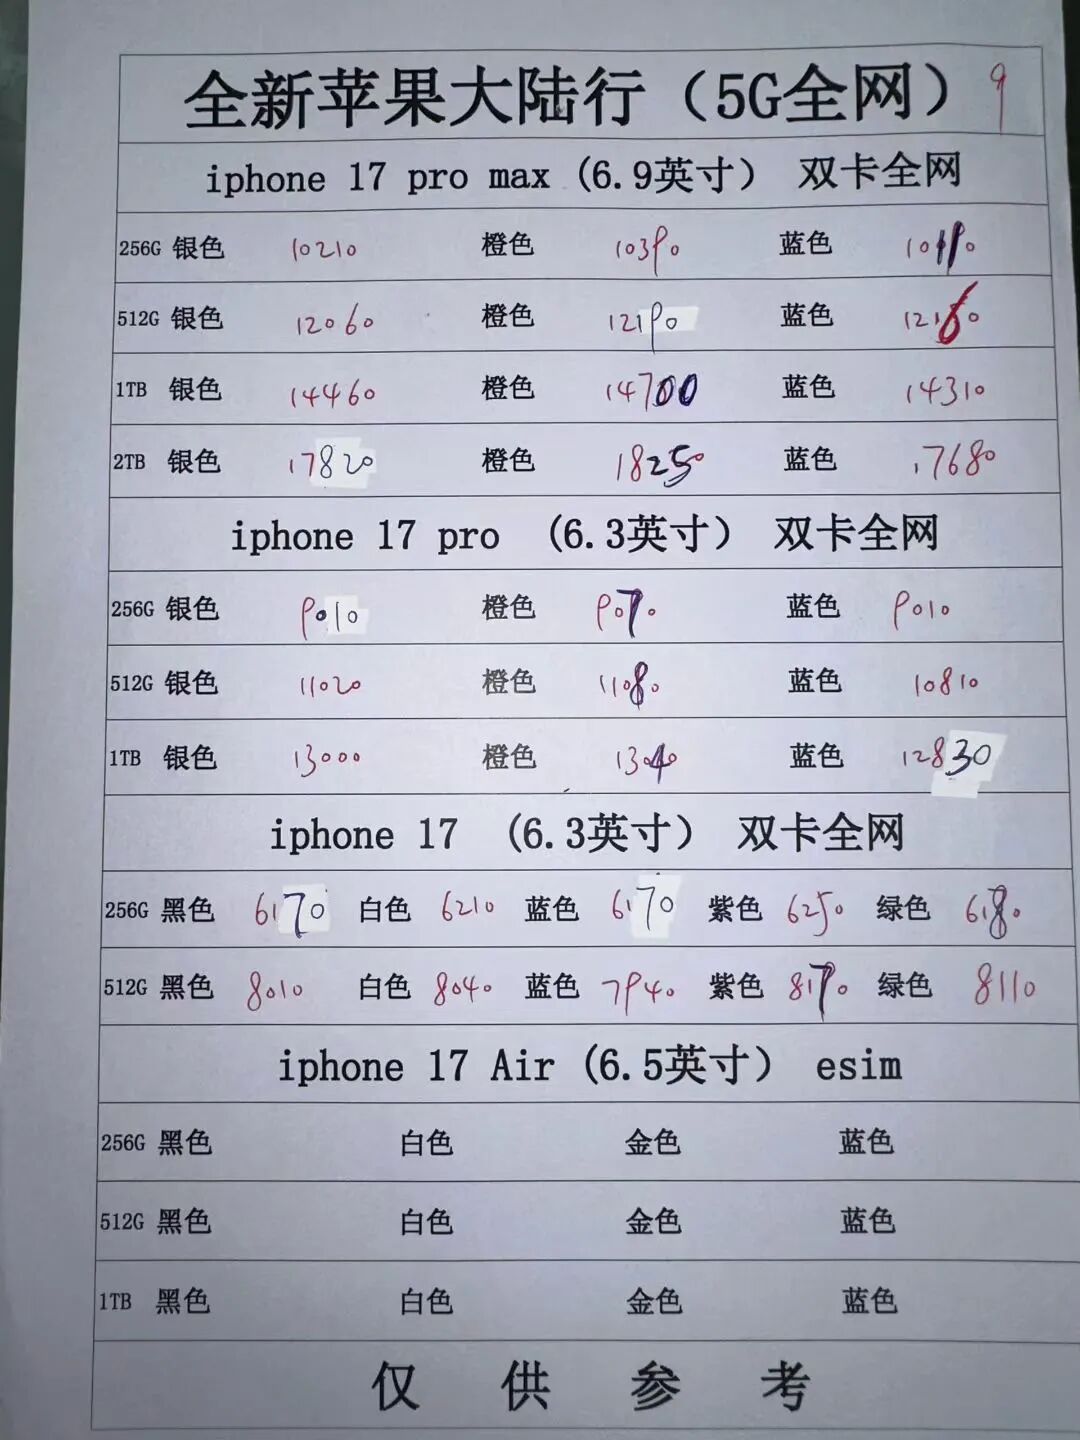 全新苹果大陆行（5G全网）9
iphone 17 pro max (6.9英寸） 双卡全网
256G 银色 10210 橙色 10390 蓝色
512G 银色 12060 橙色 12190 蓝色 12160
1TB 银色 14460 橙色 14700 蓝色 14310
2TB 银色 17820 橙色 18250 蓝色 17680
iphone 17 pro (6.3英寸） 双卡全网
256G 银色 9010 橙色 9070 蓝色 9010
512G 银色 11020 橙色 11080 蓝色 10810
1TB 银色 13000 橙色 13040 蓝色 12830
iphone 17 (6.3英寸） 双卡全网
256G 黑色 6170 白色 6210 蓝色 6170 紫色 6250 绿色 6180
512G 黑色 8010 白色 8040 蓝色 7940 紫色 8170 绿色 8110
iphone 17 Air (6.5英寸） esim
256G 黑色 白色 金色 蓝色
512G 黑色 白色 金色 蓝色
1TB 黑色 白色 金色 蓝色
仅 供 参 考